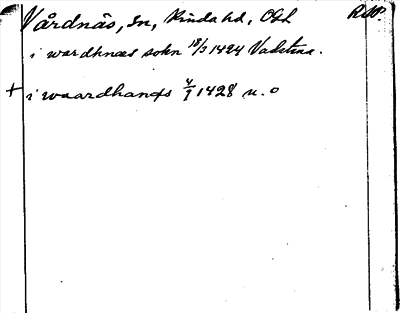 Vårdnäs, sn, Kinda hd, Ögl RAP.
i wardhnæs sokn 18/3 1424 Vadstena.
+ i waardhanæs 4/9 1428 u. o